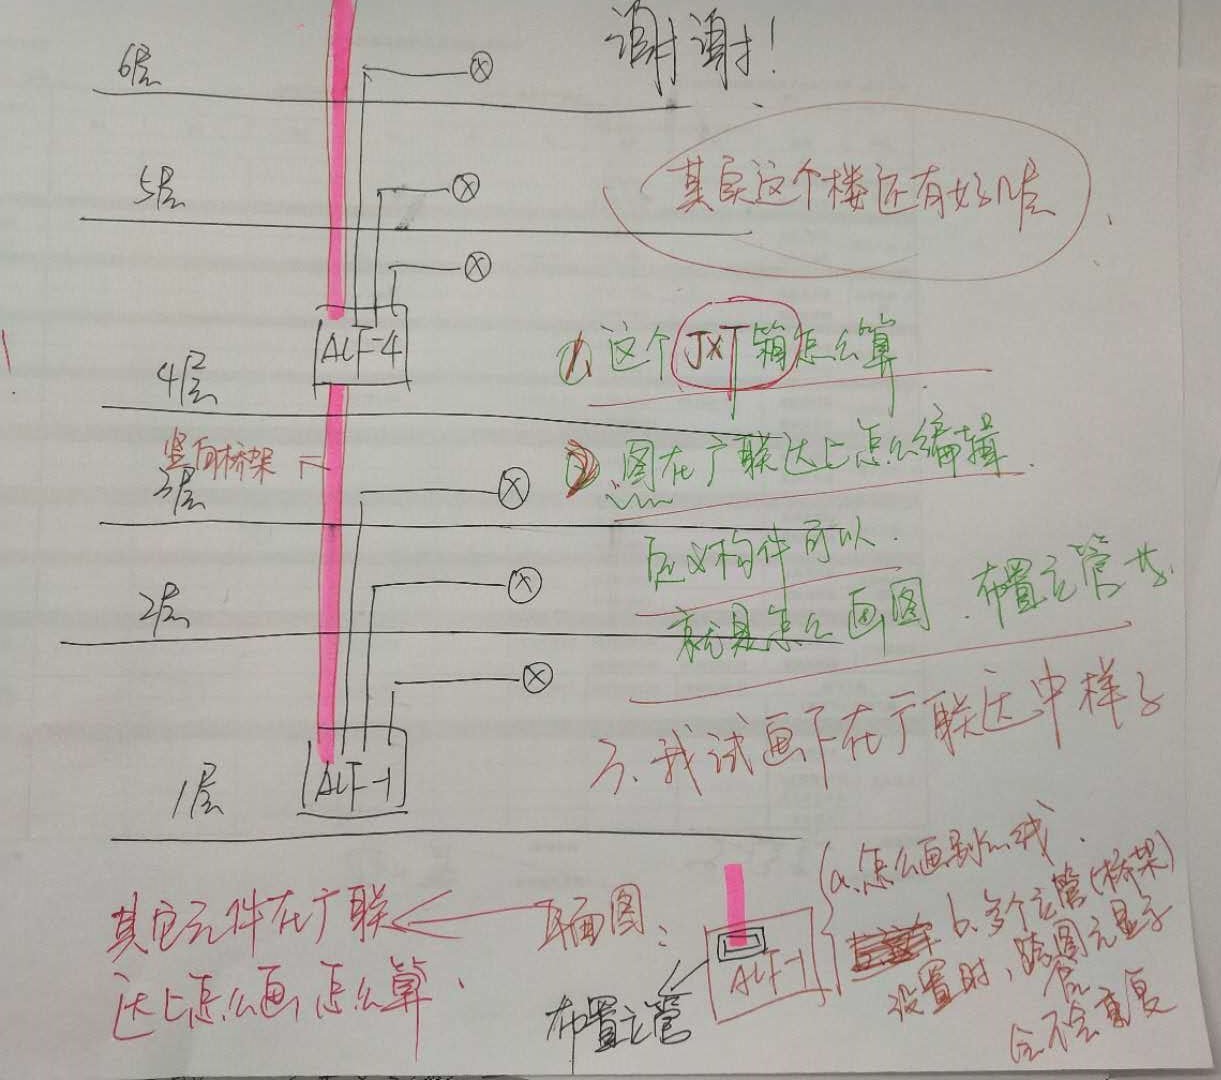 谢谢!
6层
5层
其实这个楼还有好几层
ALF-4
4层
1、这个JXT箱怎么算
竖向桥架
2、图在广联达上怎么编辑
3层
定义构件可以.
就是怎么画图.布置立管等.
2层
3、我试画下在广联达中样子
ALF-1
1层
a.怎么画
b.多个立管(桥架)
设置时、跨图元显示
会不会重复
其它元件在广联
达上怎么画,怎么算.
平面图:
ALF-1
布置立管